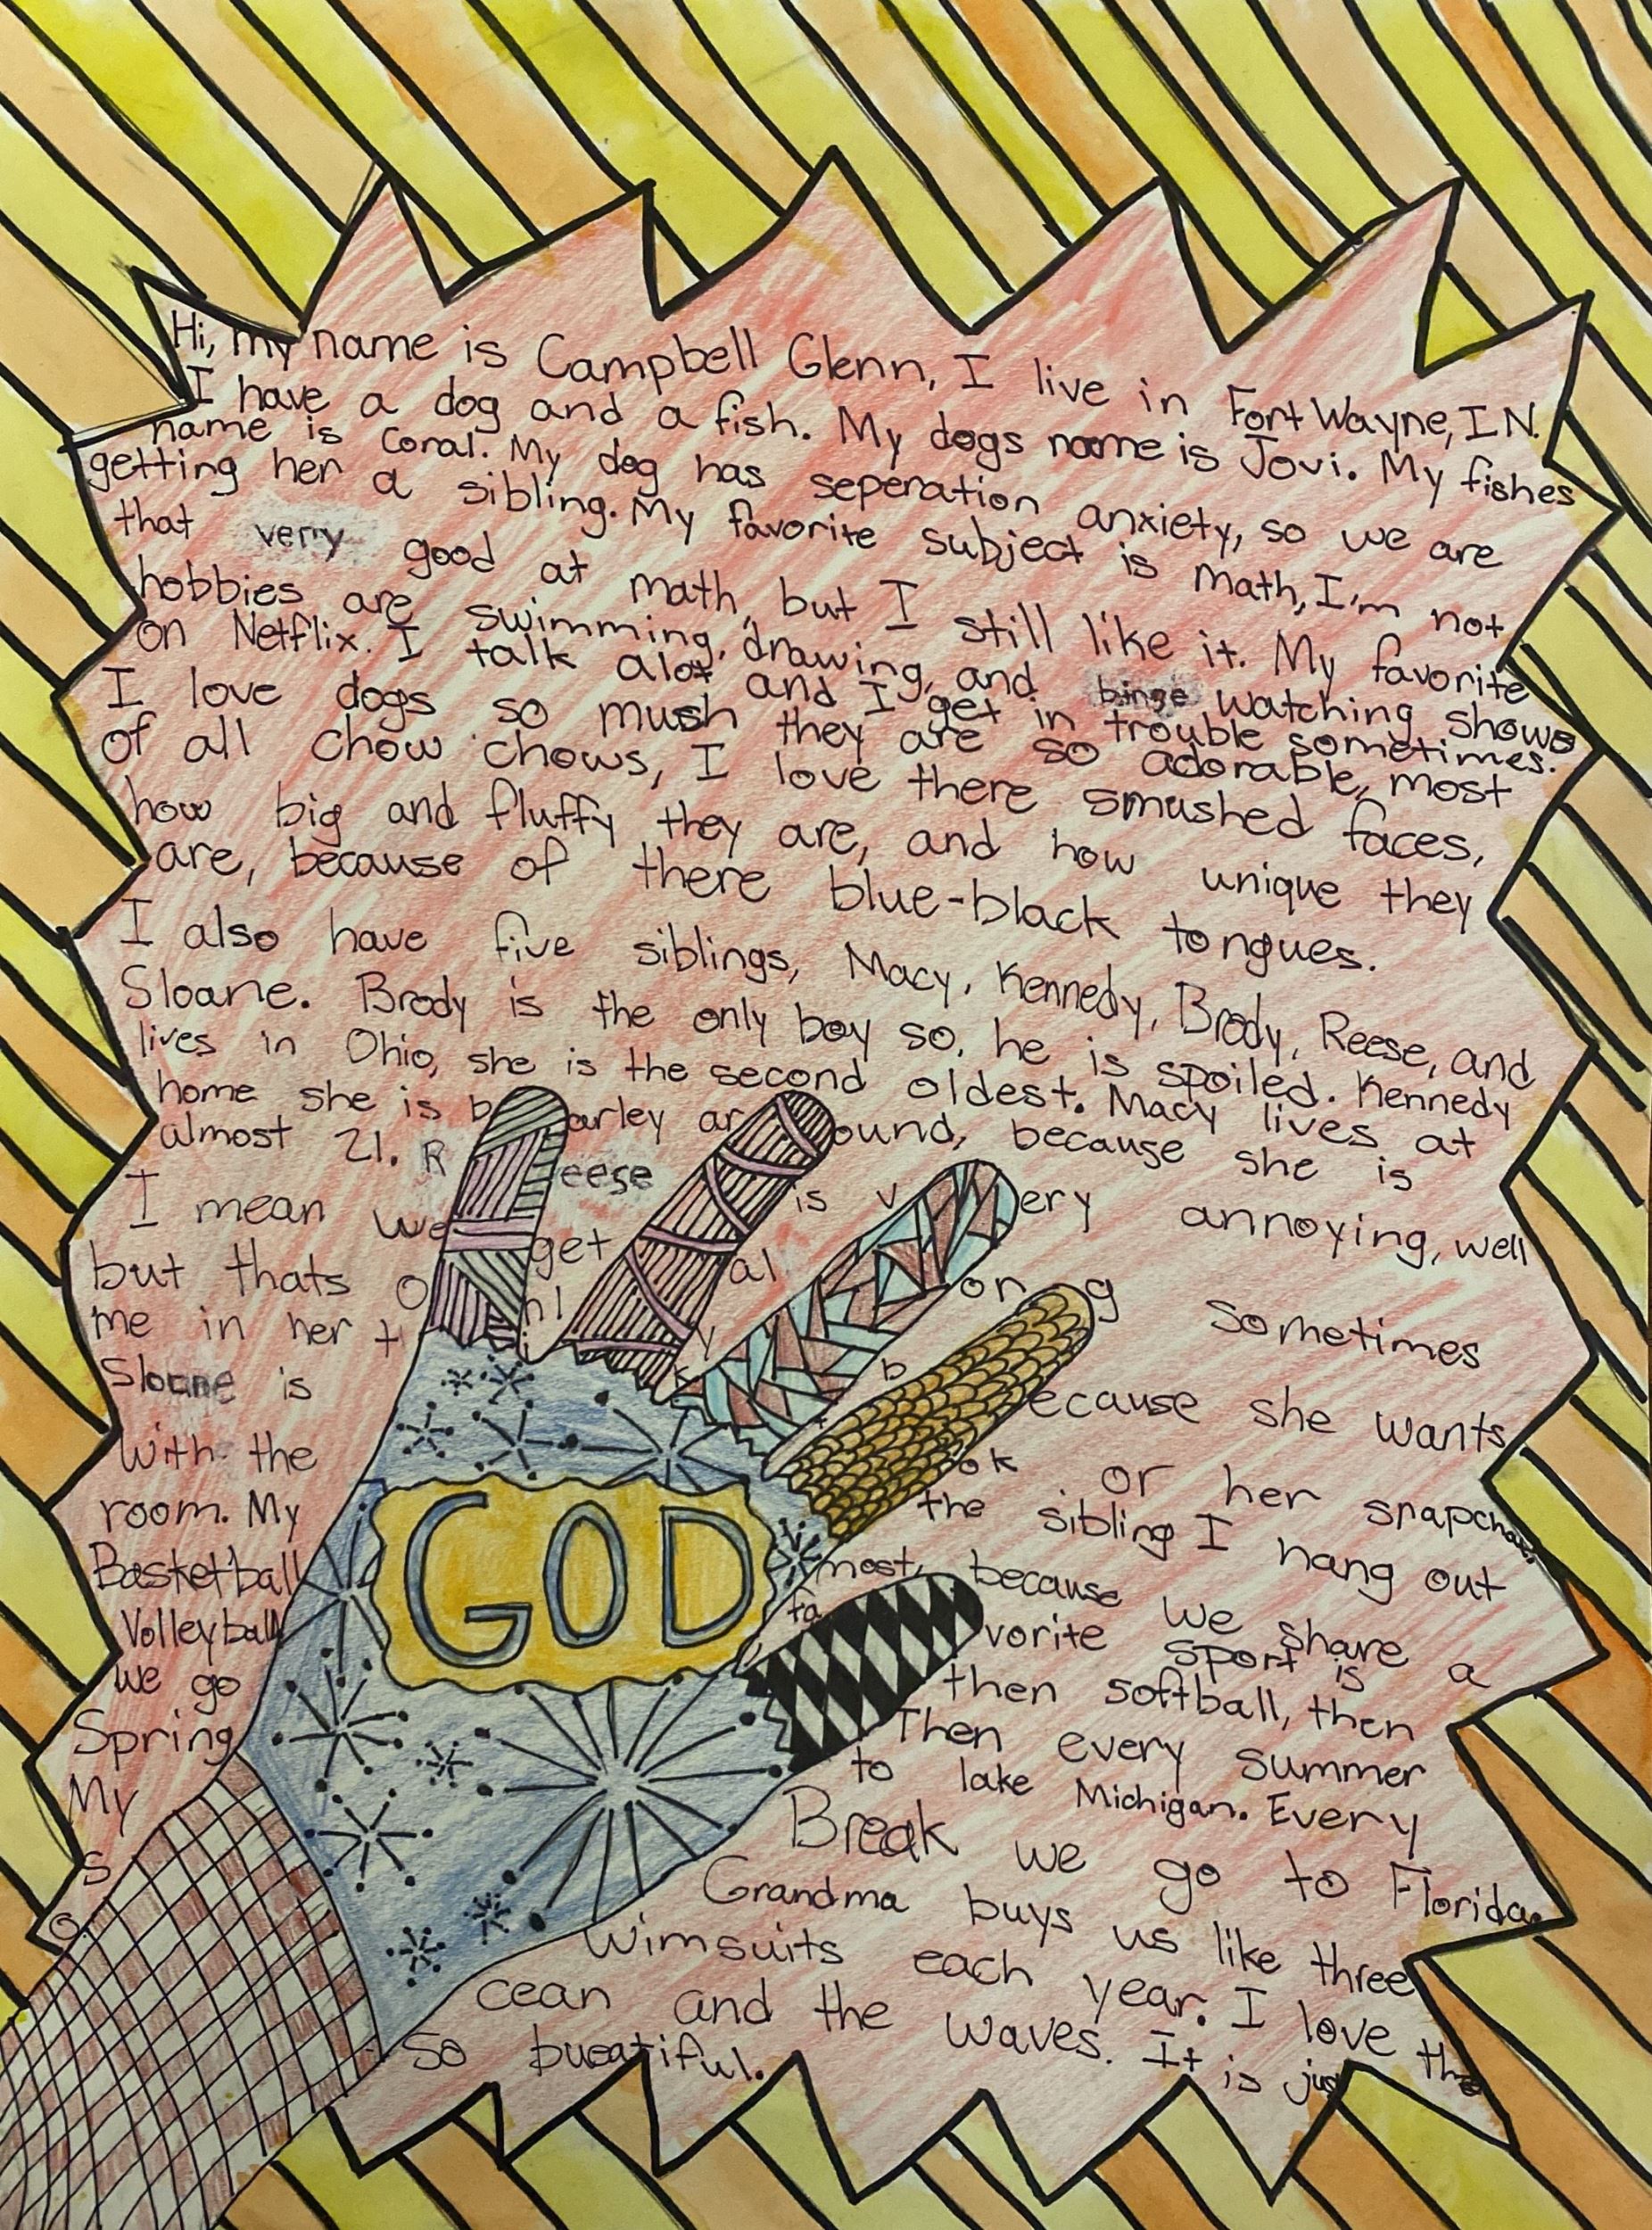 Hi, my name is Campbell Glenn, I live in Fort Wayne, IN.
I have a dog and a fish. My dogs name is Jovi. My fishes
name is Coral. My dog has seperation anxiety, so we are
getting her a sibling. My favorite subject is math, I'm not
that verry good at math, but I still like it. My favorite
hobbies are swimming, drawing, and binge watching shows
on Netflix. I talk alot and I get in trouble sometimes.
I love dogs so mush they are so adorable, most
of all chow chows, I love there smushed faces,
how big and fluffy they are, and how unique they
are, because of there blue-black tongues.
I also have five siblings, Macy, Kennedy, Brody, Reese, and
Sloane. Brody is the only boy so, he is spoiled. Kennedy
lives in Ohio, she is the second oldest. Macy lives at
home she is barley around, because she is
almost 21. Reese is very annoying, well
I mean we get along sometimes
but thats only because she wants
me in her tik tok or her snapchat.
Sloane is the sibling I hang out
with the most, because we share a
room. My favorite sport is
Basketball then softball, then
Volleyball Then every summer
we go to lake Michigan. Every
Spring Break we go to Florida.
My Grandma buys us like three
swimsuits each year. I love the
ocean and the waves. It is just
so bueatiful.
GOD